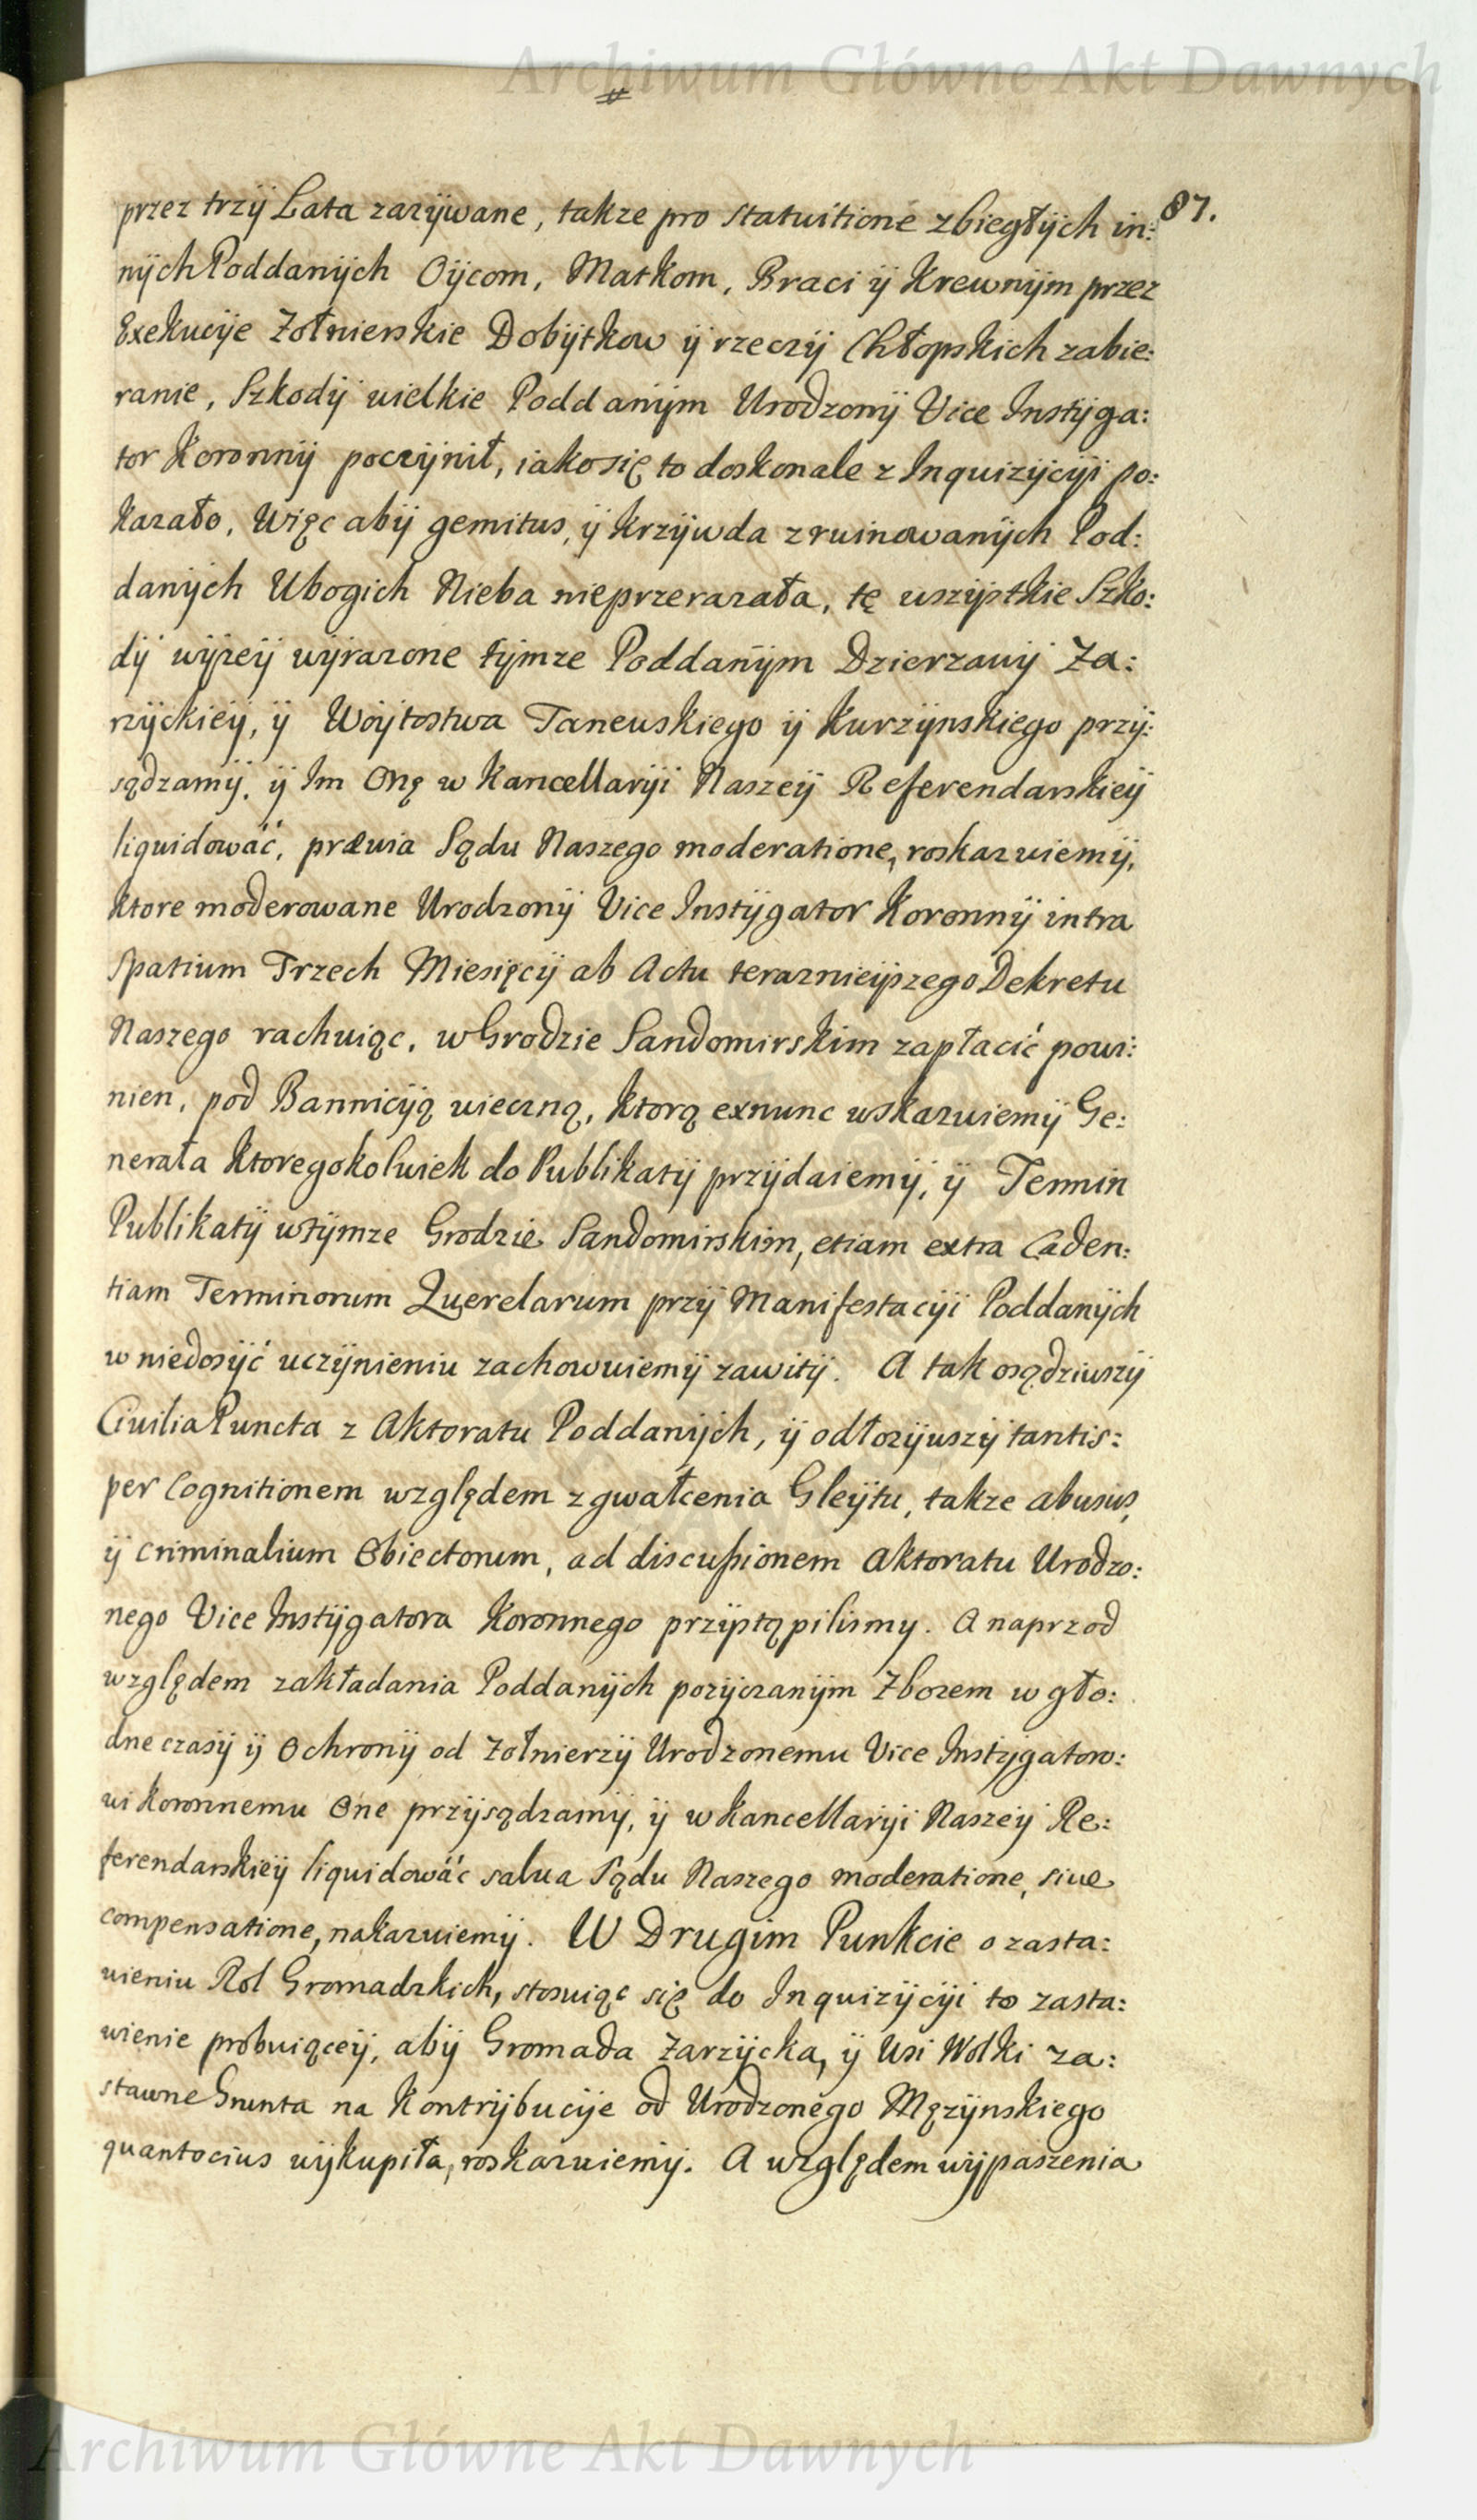 Archiwum Główne Akt Dawnych
87.
przez trzÿ Lata zazÿwane, takze pro statuitione zbiegłÿch in:
nÿch Poddanÿch Oÿcom, Matkom, Braci ÿ Krewnÿm przez
Exekucÿe Zołnierskie Dobÿtkow ÿ rzeczÿ Chłopskich zabie:
ranie, Szkodÿ wielkie Poddanÿm Urodzonÿ Vice Instÿga:
tor Koronnÿ poczÿnił, iako się to doskonale z Inquizÿcÿi po:
kazało, Więc abÿ gemitus, ÿ krzÿwda zruinowanÿch Pod:
danÿch Ubogich Nieba nieprzerazała, tę wszÿstkie Szko:
dÿ wÿzeÿ wÿrazone tÿmze Poddanÿm Dzierzawÿ Za:
rzÿckieÿ, ÿ Woÿtostwa Tanewskiego ÿ Kurzÿnskiego przÿ:
sądzamÿ, ÿ Im Onę w Kancellarÿi Naszeÿ Referendarskieÿ
liquidować, prævia Sądu Naszego moderatione, roskazuiemÿ,
ktore moderowane Urodzonÿ Vice Instÿgator Koronnÿ intra
spatium Trzech Miesięcÿ ab Actu teraznieÿszego Dekretu
Naszego rachuiąc, w Grodzie Sandomirskim zapłacić powi:
nien, pod Bannicÿą wieczną, ktorą exnunc wskazuiemÿ Ge:
nerała ktoregokolwiek do Publikatÿ przÿdaiemÿ, ÿ Termin
Publikatÿ wtÿmze Grodzie Sandomirskim, etiam extra Caden:
tiam Terminorum Querelarum przÿ Manifestacÿi Poddanÿch
w niedosÿć uczÿnieniu zachowuiemÿ zawitÿ. A tak osądziwszÿ
Civilia Puncta z Aktoratu Poddanÿch, ÿ odłozÿwszÿ tantis:
per Cognitionem względem zgwałcenia Gleÿtu, takze abusus,
ÿ criminalium Obiectorum, ad discussionem Aktoratu Urodzo:
nego Vice Instÿgatora Koronnego przÿstąpilismy. A naprzod
względem zakładania Poddanÿch pozÿczanÿm Zbozem w gło:
dne czasÿ ÿ Ochronÿ od Zołnierzÿ Urodzonemu Vice Instÿgatoro:
wi Koronnemu One przÿsądzamÿ, ÿ w Kancellarÿi Naszeÿ Re:
ferendarskieÿ liquidować salva Sądu Naszego moderatione, sive
compensatione, nakazuiemÿ. W Drugim Punkcie o zasta:
wieniu Rol Gromadzkich, stosuiąc się do Inquizÿcÿi to zasta:
wienie probuiąceÿ, abÿ Gromada Zarzÿcka, ÿ Wsi Wolki za:
stawne Grunta na Kontrÿbucÿe od Urodzonego Mązÿnskiego
quantocius wÿkupiła, roskazuiemÿ. A względem wÿpaszenia
Archiwum Główne Akt Dawnych